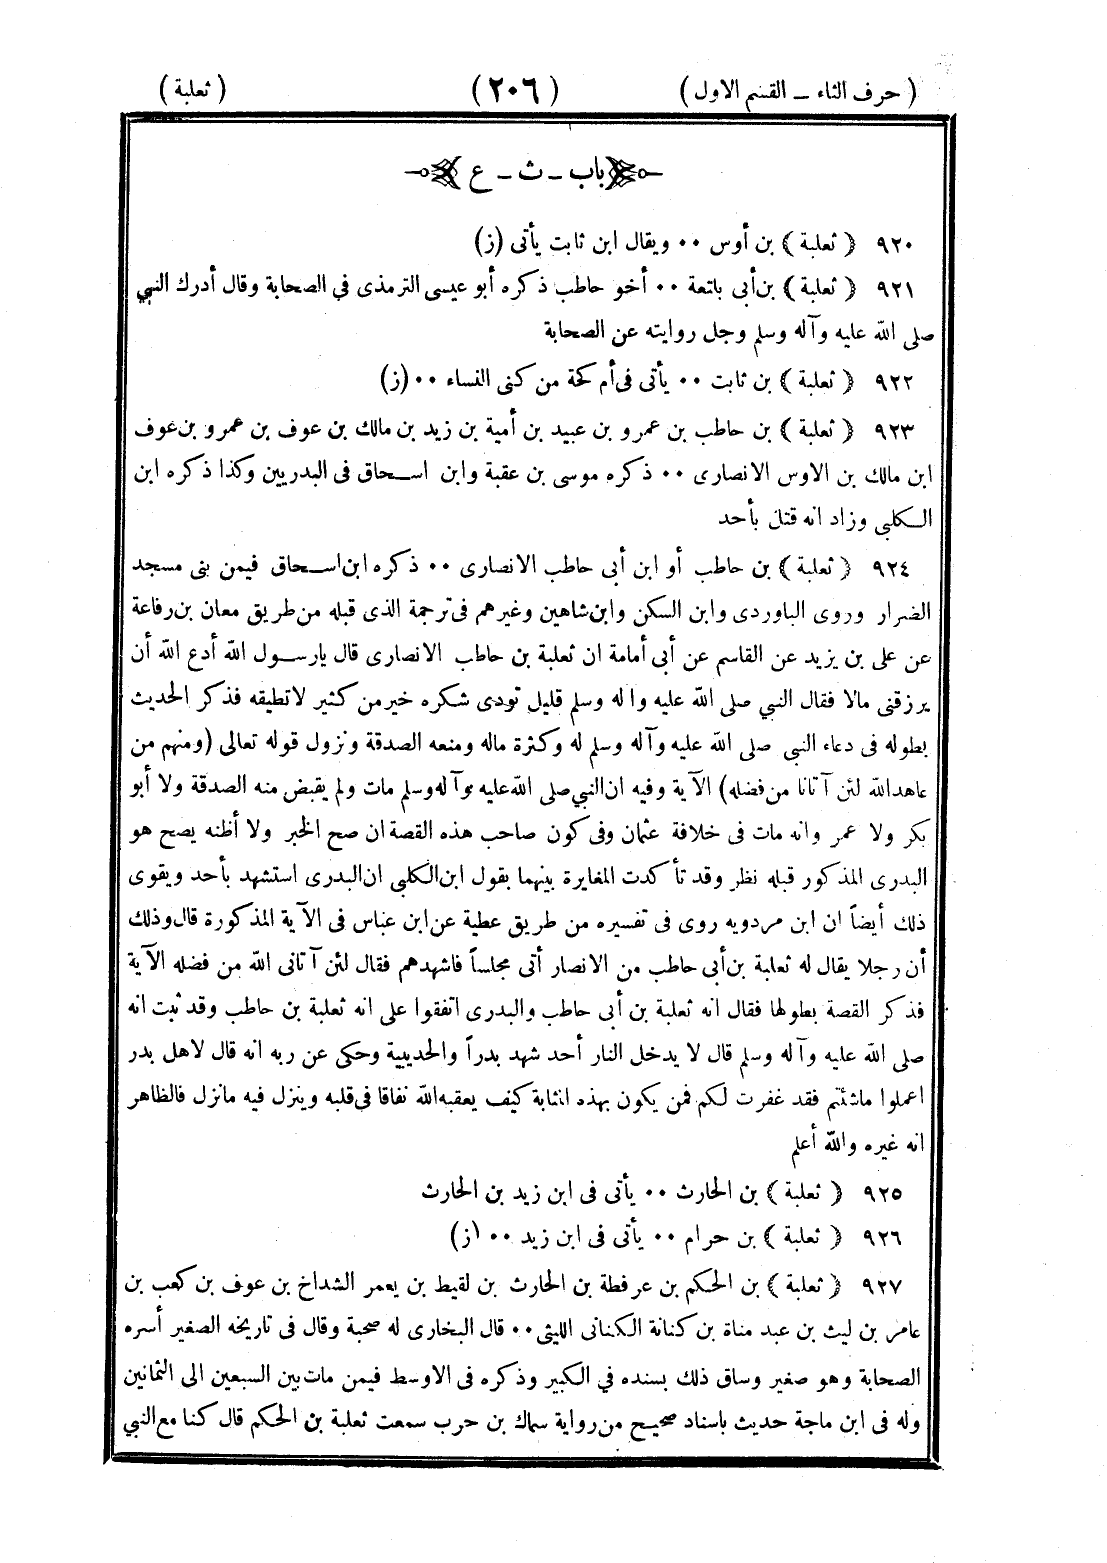 ( حرف الثاء ــ القسم الاول )
( ٢٠٦ )
( ثعلبة )
باب ـ ث ـ ع
٩٢٠ ( ثعلبة ) بن أوس ٠٠ ويقال ابن ثابت يأتى (ز)
٩٢١ ( ثعلبة ) بن أبى بلتعة ٠٠ أخو حاطب ذكره أبو عيسى الترمذى فى الصحابة وقال أدرك النبي
صلى الله عليه وآله وسلم وجل روايته عن الصحابة
٩٢٢ ( ثعلبة ) بن ثابت ٠٠ يأتى فى أم كحة من كنى النساء ٠٠ (ز)
٩٢٣ ( ثعلبة ) بن حاطب بن عمرو بن عبيد بن أمية بن زيد بن مالك بن عوف بن عمرو بن عوف
ابن مالك بن الاوس الانصارى ٠٠ ذكره موسى بن عقبة وابن اسحاق فى البدريين وكذا ذكره ابن
الكلبى وزاد انه قتل بأحد
٩٢٤ ( ثعلبة ) بن حاطب أو ابن أبى حاطب الانصارى ٠٠ ذكره ابن اسحاق فيمن بنى مسجد
الضرار وروى الباوردى وابن السكن وابن شاهين وغيرهم فى ترجمة الذى قبله من طريق معان بن رفاعة
عن على بن يزيد عن القاسم عن أبى أمامة ان ثعلبة بن حاطب الانصارى قال يارسول الله أدع الله أن
يرزقنى مالا فقال النبي صلى الله عليه واله وسلم قليل تودى شكره خير من كثير لاتطيقه فذكر الحديث
بطوله فى دعاء النبى صلى الله عليه وآله وسلم له وكثرة ماله ومنعه الصدقة ونزول قوله تعالى (ومنهم من
عاهد الله لئن آتانا من فضله) الآية وفيه ان النبي صلى الله عليه وآله وسلم مات ولم يقبض منه الصدقة ولا أبو
بكر ولا عمر وانه مات فى خلافة عثمان وفى كون صاحب هذه القصة ان صح الخبر ولا أظنه يصح هو
البدرى المذكور قبله نظر وقد تأكدت المغايرة بينهما بقول ابن الكلبى ان البدرى استشهد بأحد ويقوى
ذلك أيضاً ان ابن مردويه روى فى تفسيره من طريق عطية عن ابن عباس فى الآية المذكورة قال وذلك
أن رجلا يقال له ثعلبة بن أبى حاطب من الانصار أتى مجلساً فاشهدهم فقال لئن آتانى الله من فضله الآية
فذكر القصة بطولها فقال انه ثعلبة بن أبى حاطب والبدرى اتفقوا على انه ثعلبة بن حاطب وقد ثبت انه
صلى الله عليه وآله وسلم قال لا يدخل النار أحد شهد بدراً والحديبية وحكى عن ربه انه قال لاهل بدر
اعملوا ماشئتم فقد غفرت لكم فمن يكون بهذه المثابة كيف يعقبه الله نفاقا فى قلبه وينزل فيه مانزل فالظاهر
انه غيره والله أعلم
٩٢٥ ( ثعلبة ) بن الحارث ٠٠ يأتى فى ابن زيد بن الحارث
٩٢٦ ( ثعلبة ) بن حرام ٠٠ يأتى فى ابن زيد ٠٠ (ز)
٩٢٧ ( ثعلبة ) بن الحكم بن عرفطة بن الحارث بن لقيط بن يعمر الشداخ بن عوف بن كعب بن
عامر بن ليث بن عبد مناة بن كنانة الكنانى الليثى ٠٠ قال البخارى له صحبة وقال فى تاريخه الصغير أسره
الصحابة وهو صغير وساق ذلك بسنده في الكبير وذكره فى الاوسط فيمن مات بين السبعين الى الثمانين
وله فى ابن ماجة حديث باسناد صحيح من رواية سماك بن حرب سمعت ثعلبة بن الحكم قال كنا مع النبي